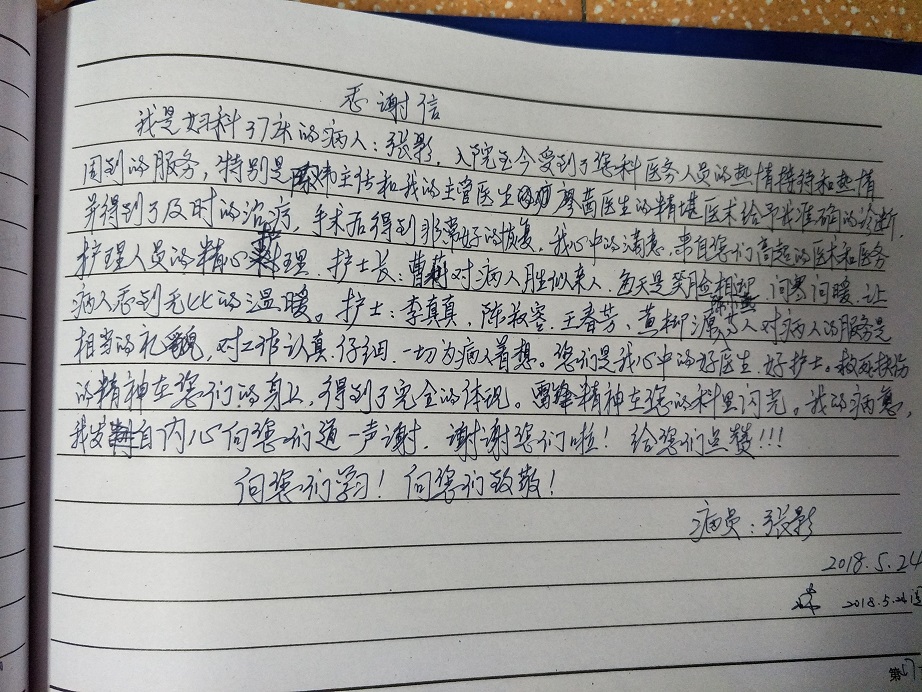 感谢信
我是妇科37床的病人：张影，入院至今受到了您科医务人员的热情接待和热情
周到的服务，特别是陈伟主任和我的主管医生廖茵医生的精堪医术给予我准确的诊断
并得到了及时的治疗，手术后得到非常好的恢复，我心中的满意，来自您们高超的医术和医务
护理人员的精心护理，护士长：曹莉对病人胜似亲人，每天是笑脸相迎，问寒问暖，让
病人感到无比的温暖。护士：李真真，陈淑容，王春芳，黄柳源等人对病人的服务是
相当的礼貌，对工作认真，仔细，一切为病人着想。您们是我心中的好医生，好护士。救死扶伤
的精神在您们的身上，得到了完全的体现。雷锋精神在您的科里闪亮。我的病愈，
我发自内心向您们道一声谢，谢谢您们啦！给您们点赞!!!
向您们学习！向您们致敬！
病员：张影
2018.5.24
2018.5.24
第57